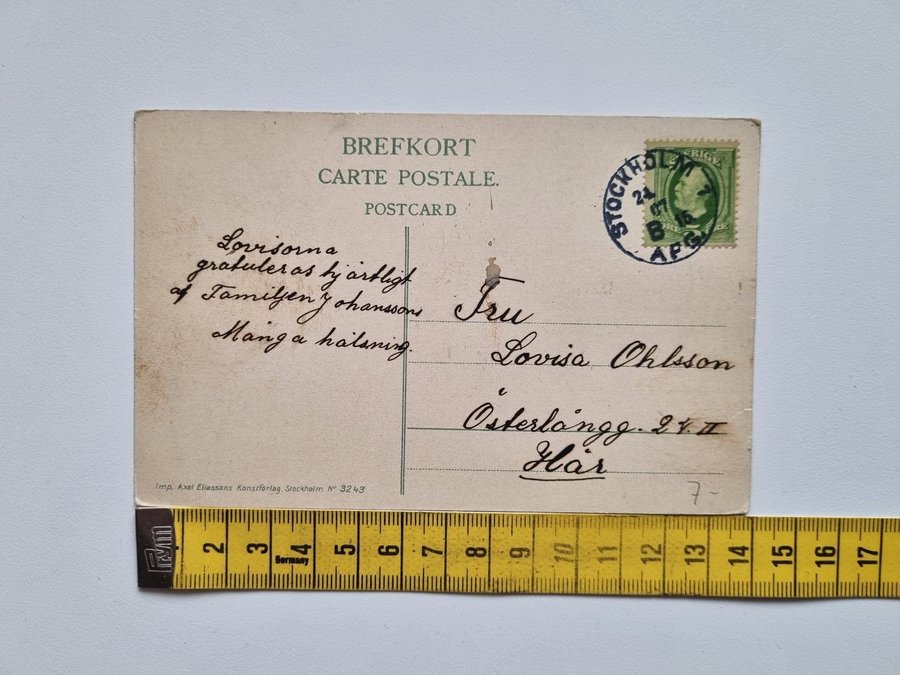 BREFKORT
CARTE POSTALE.
POSTCARD
SVERIGE
STOCKHOLM 1
24
07
B 16
APG.
Lovisorna
gratuleras hjärtligt
af Familjen Johanssons
Många hälsning.
Fru
Lovisa Ohlsson
Österlångg. 24. II
Här
Imp. Axel Eliassons Konstförlag, Stockholm No 3243
7-
2 3 4 5 6 7 8 9 10 11 12 13 14 15 16 17
Germany